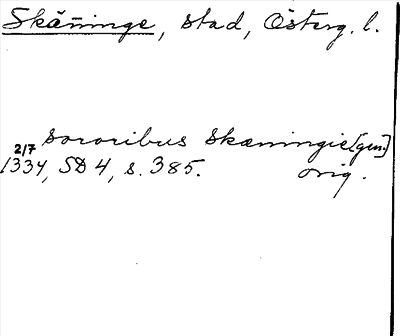 Skänninge, stad, Österg. l.
sororibus Skæningie [gen.]
2/7 1334, SD 4, s. 385. orig.